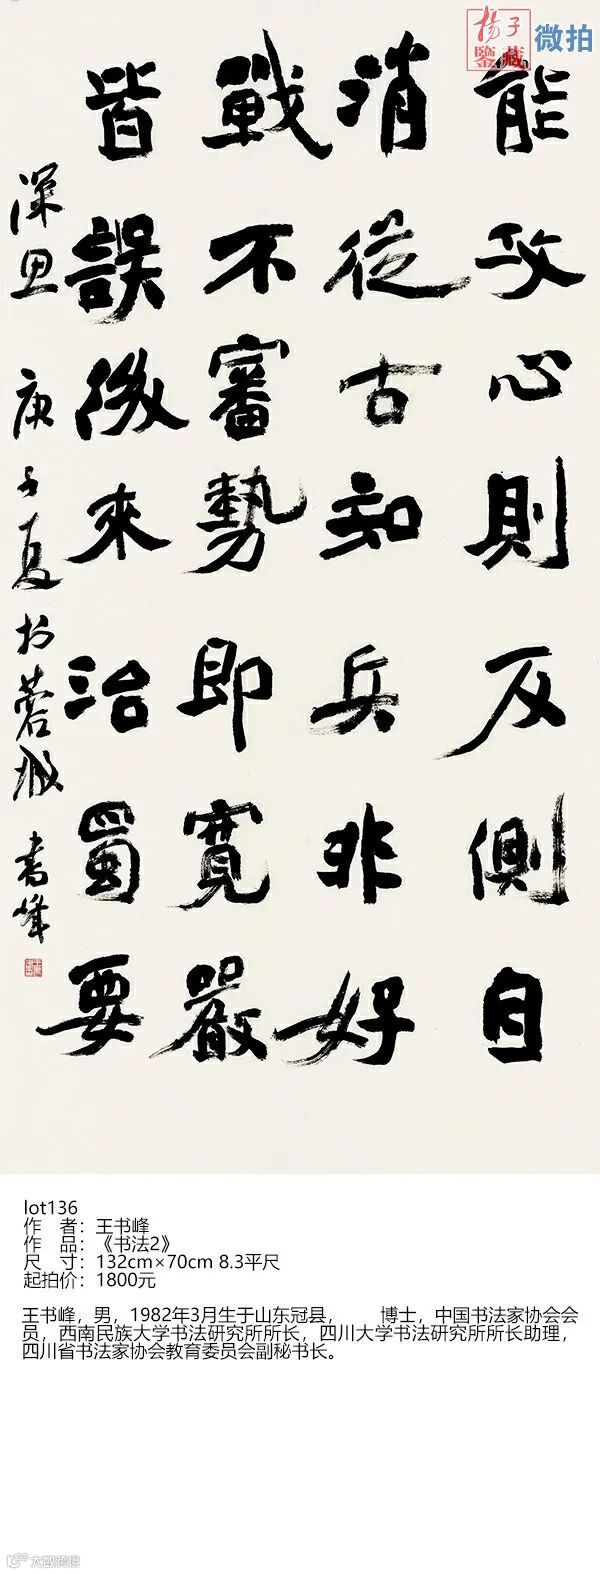 揚子
鑒藏
微拍
能攻心則反側自
消從古知兵非好
戰不審勢即寬嚴
皆誤後來治蜀要
深思 庚子夏於蓉城 書峰
lot136
作　者：王书峰
作　品：《书法2》
尺　寸：132cm×70cm 8.3平尺
起拍价：1800元
王书峰，男，1982年3月生于山东冠县，　　博士，中国书法家协会会
员，西南民族大学书法研究所所长，四川大学书法研究所所长助理，
四川省书法家协会教育委员会副秘书长。
大数跨境